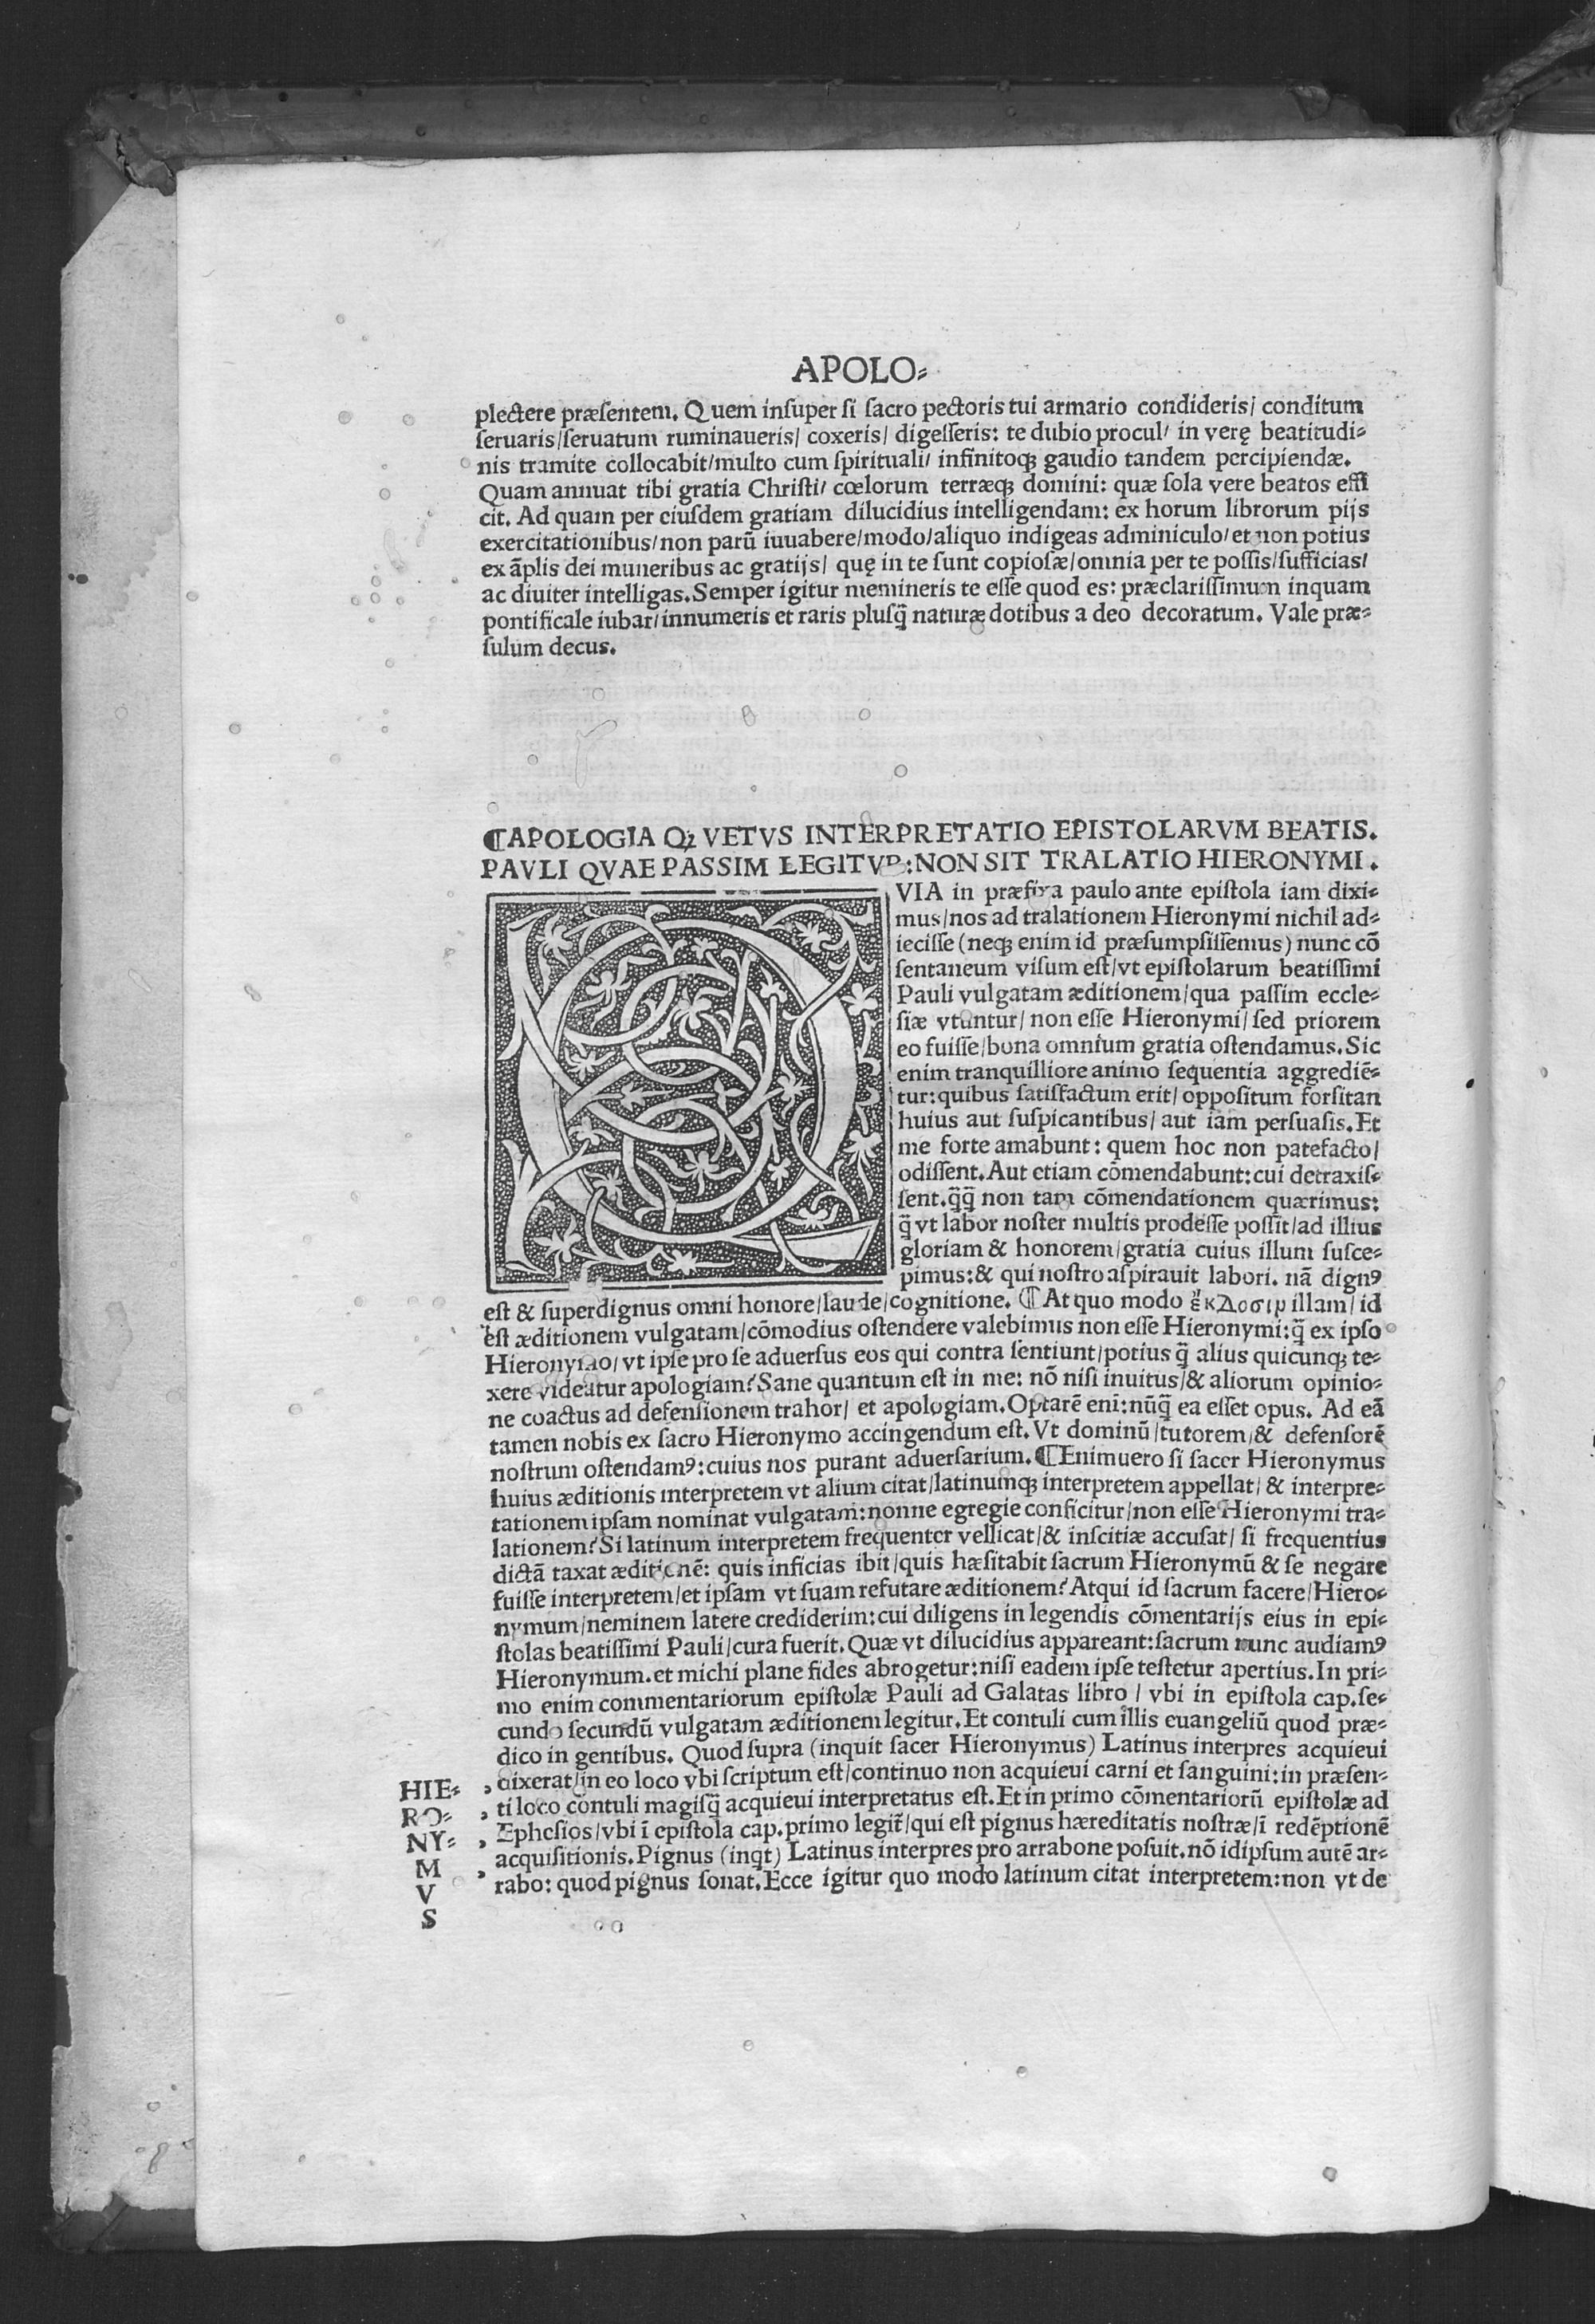 APOLO⸗
plectere præsentem. Quem insuper si sacro pectoris tui armario condideris/ conditum
seruaris/seruatum ruminaueris/ coxeris/ digesseris: te dubio procul/ in verę beatitudi⸗
nis tramite collocabit/multo cum spirituali/ infinitoqꝫ gaudio tandem percipiendæ.
Quam annuat tibi gratia Christi/ cœlorum terræqꝫ domini: quæ sola vere beatos effi
cit. Ad quam per eiusdem gratiam dilucidius intelligendam: ex horum librorum pijs
exercitationibus/non parū iuuabere/modo/aliquo indigeas adminiculo/et non potius
ex āplis dei muneribus ac gratijs/ quę in te sunt copiosæ/omnia per te possis/sufficias/
ac diuiter intelligas. Semper igitur memineris te esse quod es: præclarissimum inquam
pontificale iubar/innumeris et raris plusq̄ naturæ dotibus a deo decoratum. Vale præ⸗
sulum decus.
¶APOLOGIA Qꝫ VETVS INTERPRETATIO EPISTOLARVM BEATIS.
PAVLI QVAE PASSIM LEGITVR: NON SIT TRALATIO HIERONYMI.
QVIA in præfixa paulo ante epistola iam dixi⸗
mus/nos ad tralationem Hieronymi nichil ad⸗
iecisse (neqꝫ enim id præsumpsissemus) nunc cō
sentaneum visum est/vt epistolarum beatissimi
Pauli vulgatam æditionem/qua passim eccle⸗
siæ vtuntur/ non esse Hieronymi/ sed priorem
eo fuisse/bona omnium gratia ostendamus. Sic
enim tranquilliore animo sequentia aggrediē⸗
tur: quibus satisfactum erit/ oppositum forsitan
huius aut suspicantibus/ aut iam persuasis. Et
me forte amabunt: quem hoc non patefacto/
odissent. Aut etiam cōmendabunt: cui detraxis⸗
sent. q̄q̄ non tam cōmendationem quærimus:
q̄ vt labor noster multis prodesse possit/ad illius
gloriam & honorem/gratia cuius illum susce⸗
pimus: & qui nostro aspirauit labori. nā dignꝰ
est & superdignus omni honore/laude/cognitione. ¶ At quo modo ἔκδοσιν illam/ id
est æditionem vulgatam/cōmodius ostendere valebimus non esse Hieronymi: q̄ ex ipso
Hieronymo/ vt ipse pro se aduersus eos qui contra sentiunt/potius q̄ alius quicunqꝫ te⸗
xere videatur apologiam? Sane quantum est in me: nō nisi inuitus/& aliorum opinio⸗
ne coactus ad defensionem trahor/ et apologiam. Optarē eni: nūq̄ ea esset opus. Ad eā
tamen nobis ex sacro Hieronymo accingendum est. Vt dominū/tutorem/& defensorē
nostrum ostendamꝰ: cuius nos putant aduersarium. ¶Enimuero si sacer Hieronymus
huius æditionis interpretem vt alium citat/latinumqꝫ interpretem appellat/ & interpre⸗
tationem ipsam nominat vulgatam: nonne egregie conficitur/non esse Hieronymi tra⸗
lationem? Si latinum interpretem frequenter vellicat/& inscitiæ accusat/ si frequentius
dictā taxat æditionē: quis inficias ibit/quis hæsitabit sacrum Hieronymū & se negare
fuisse interpretem/et ipsam vt suam refutare æditionem? Atqui id sacrum facere/Hiero⸗
nymum/neminem latere crediderim: cui diligens in legendis cōmentarijs eius in epi⸗
stolas beatissimi Pauli/cura fuerit. Quæ vt dilucidius appareant: sacrum nunc audiamꝰ
Hieronymum. et michi plane fides abrogetur: nisi eadem ipse testetur apertius. In pri⸗
mo enim commentariorum epistolæ Pauli ad Galatas libro / vbi in epistola cap. se⸗
cundo secundū vulgatam æditionem legitur. Et contuli cum illis euangeliū quod præ⸗
dico in gentibus. Quod supra (inquit sacer Hieronymus) Latinus interpres acquieui
HIE⸗ , dixerat/in eo loco vbi scriptum est/continuo non acquieui carni et sanguini: in præsen⸗
RO⸗ , ti loco contuli magisq̄ acquieui interpretatus est. Et in primo cōmentariorū epistolæ ad
NY⸗ , Ephesios/vbi ī epistola cap. primo legit̄/qui est pignus hæreditatis nostræ/ī redēptionē
M acquisitionis. Pignus (inq̄t) Latinus interpres pro arrabone posuit. nō idipsum autē ar⸗
V , rabo: quod pignus sonat. Ecce igitur quo modo latinum citat interpretem: non vt de
S